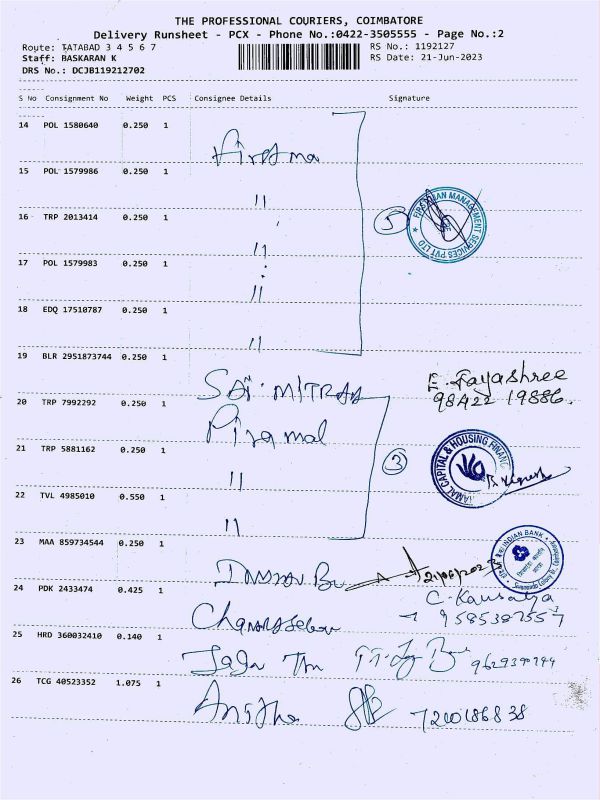 THE PROFESSIONAL COURIERS, COIMBATORE
Delivery Runsheet - PCX - Phone No.:0422-3505555 - Page No.:2
Route: TATABAD 3 4 5 6 7
RS No.: 1192127
Staff: BASKARAN K
RS Date: 21-Jun-2023
DRS No.: DCJB119212702
S No Consignment No Weight PCS Consignee Details Signature
14 POL 1580640 0.250 1
15 POL 1579986 0.250 1
"
16 TRP 2013414 0.250 1
5
FIRSTMAN MANAGEMENT SERVICES PVT LTD
"
17 POL 1579983 0.250 1
"
18 EDQ 17510787 0.250 1
"
19 BLR 2951873744 0.250 1
SAI MITRAA
E. Jayashree
98422 19886.
20 TRP 7992292 0.250 1
Piramal
21 TRP 5881162 0.250 1
3
CAPITAL & HOUSING FINANC
"
22 TVL 4985010 0.550 1
"
23 MAA 859734544 0.250 1
INDIAN BANK
24 PDK 2433474 0.425 1
C. Kausalya
25 HRD 360032410 0.140 1
26 TCG 40523352 1.075 1